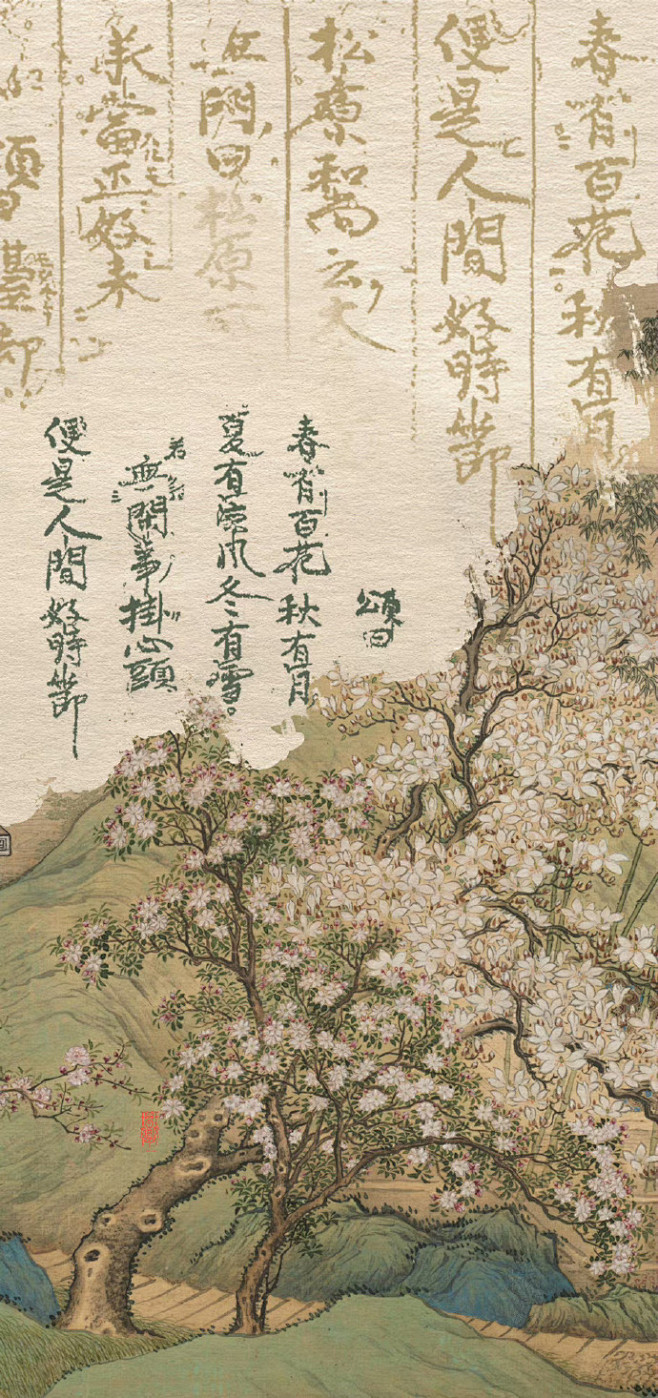 春有百花秋有月
便是人間好時節
松 和尚云大
門曰松原
當正好未
頌曰
春有百花秋有月
夏有涼風冬有雪。
若無閑事掛心頭
便是人間好時節